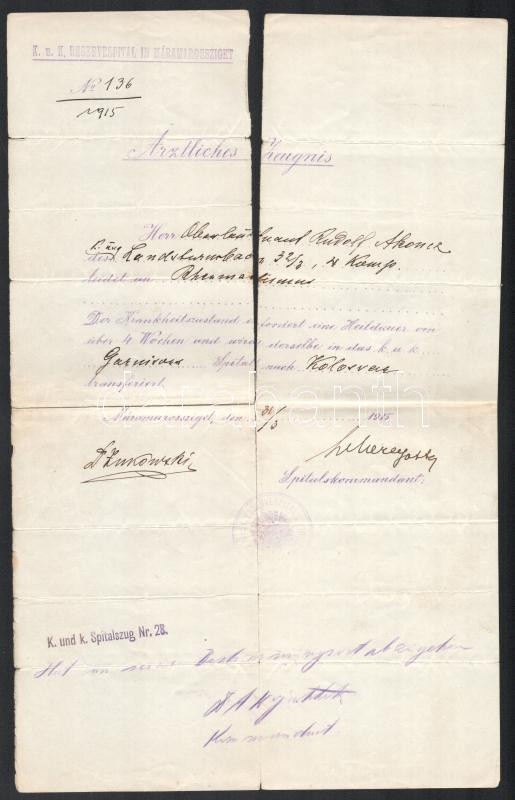 K. u. K. RESERVESPITAL IN MÁRAMAROSSZIGET
No 136
1915
Ärztliches Zeugnis
Herr Oberleutnant Rudolf
k. ung. Landsturmbaon 32/3, 4 Komp.
leidet an Rheumatismus
Der Krankheitszustand erfordert eine Heildauer von
über 4 Wochen und wird derselbe in das k. u. k.
Garnisons Spital nach Kolosvar
transferiert.
Máramarossziget, den 31/3 1915
Spitalskommandant:
K. und k. Spitalszug Nr. 28.
Hat an seine Bestimmungsort abzugehen
Kommandant.
darabanth